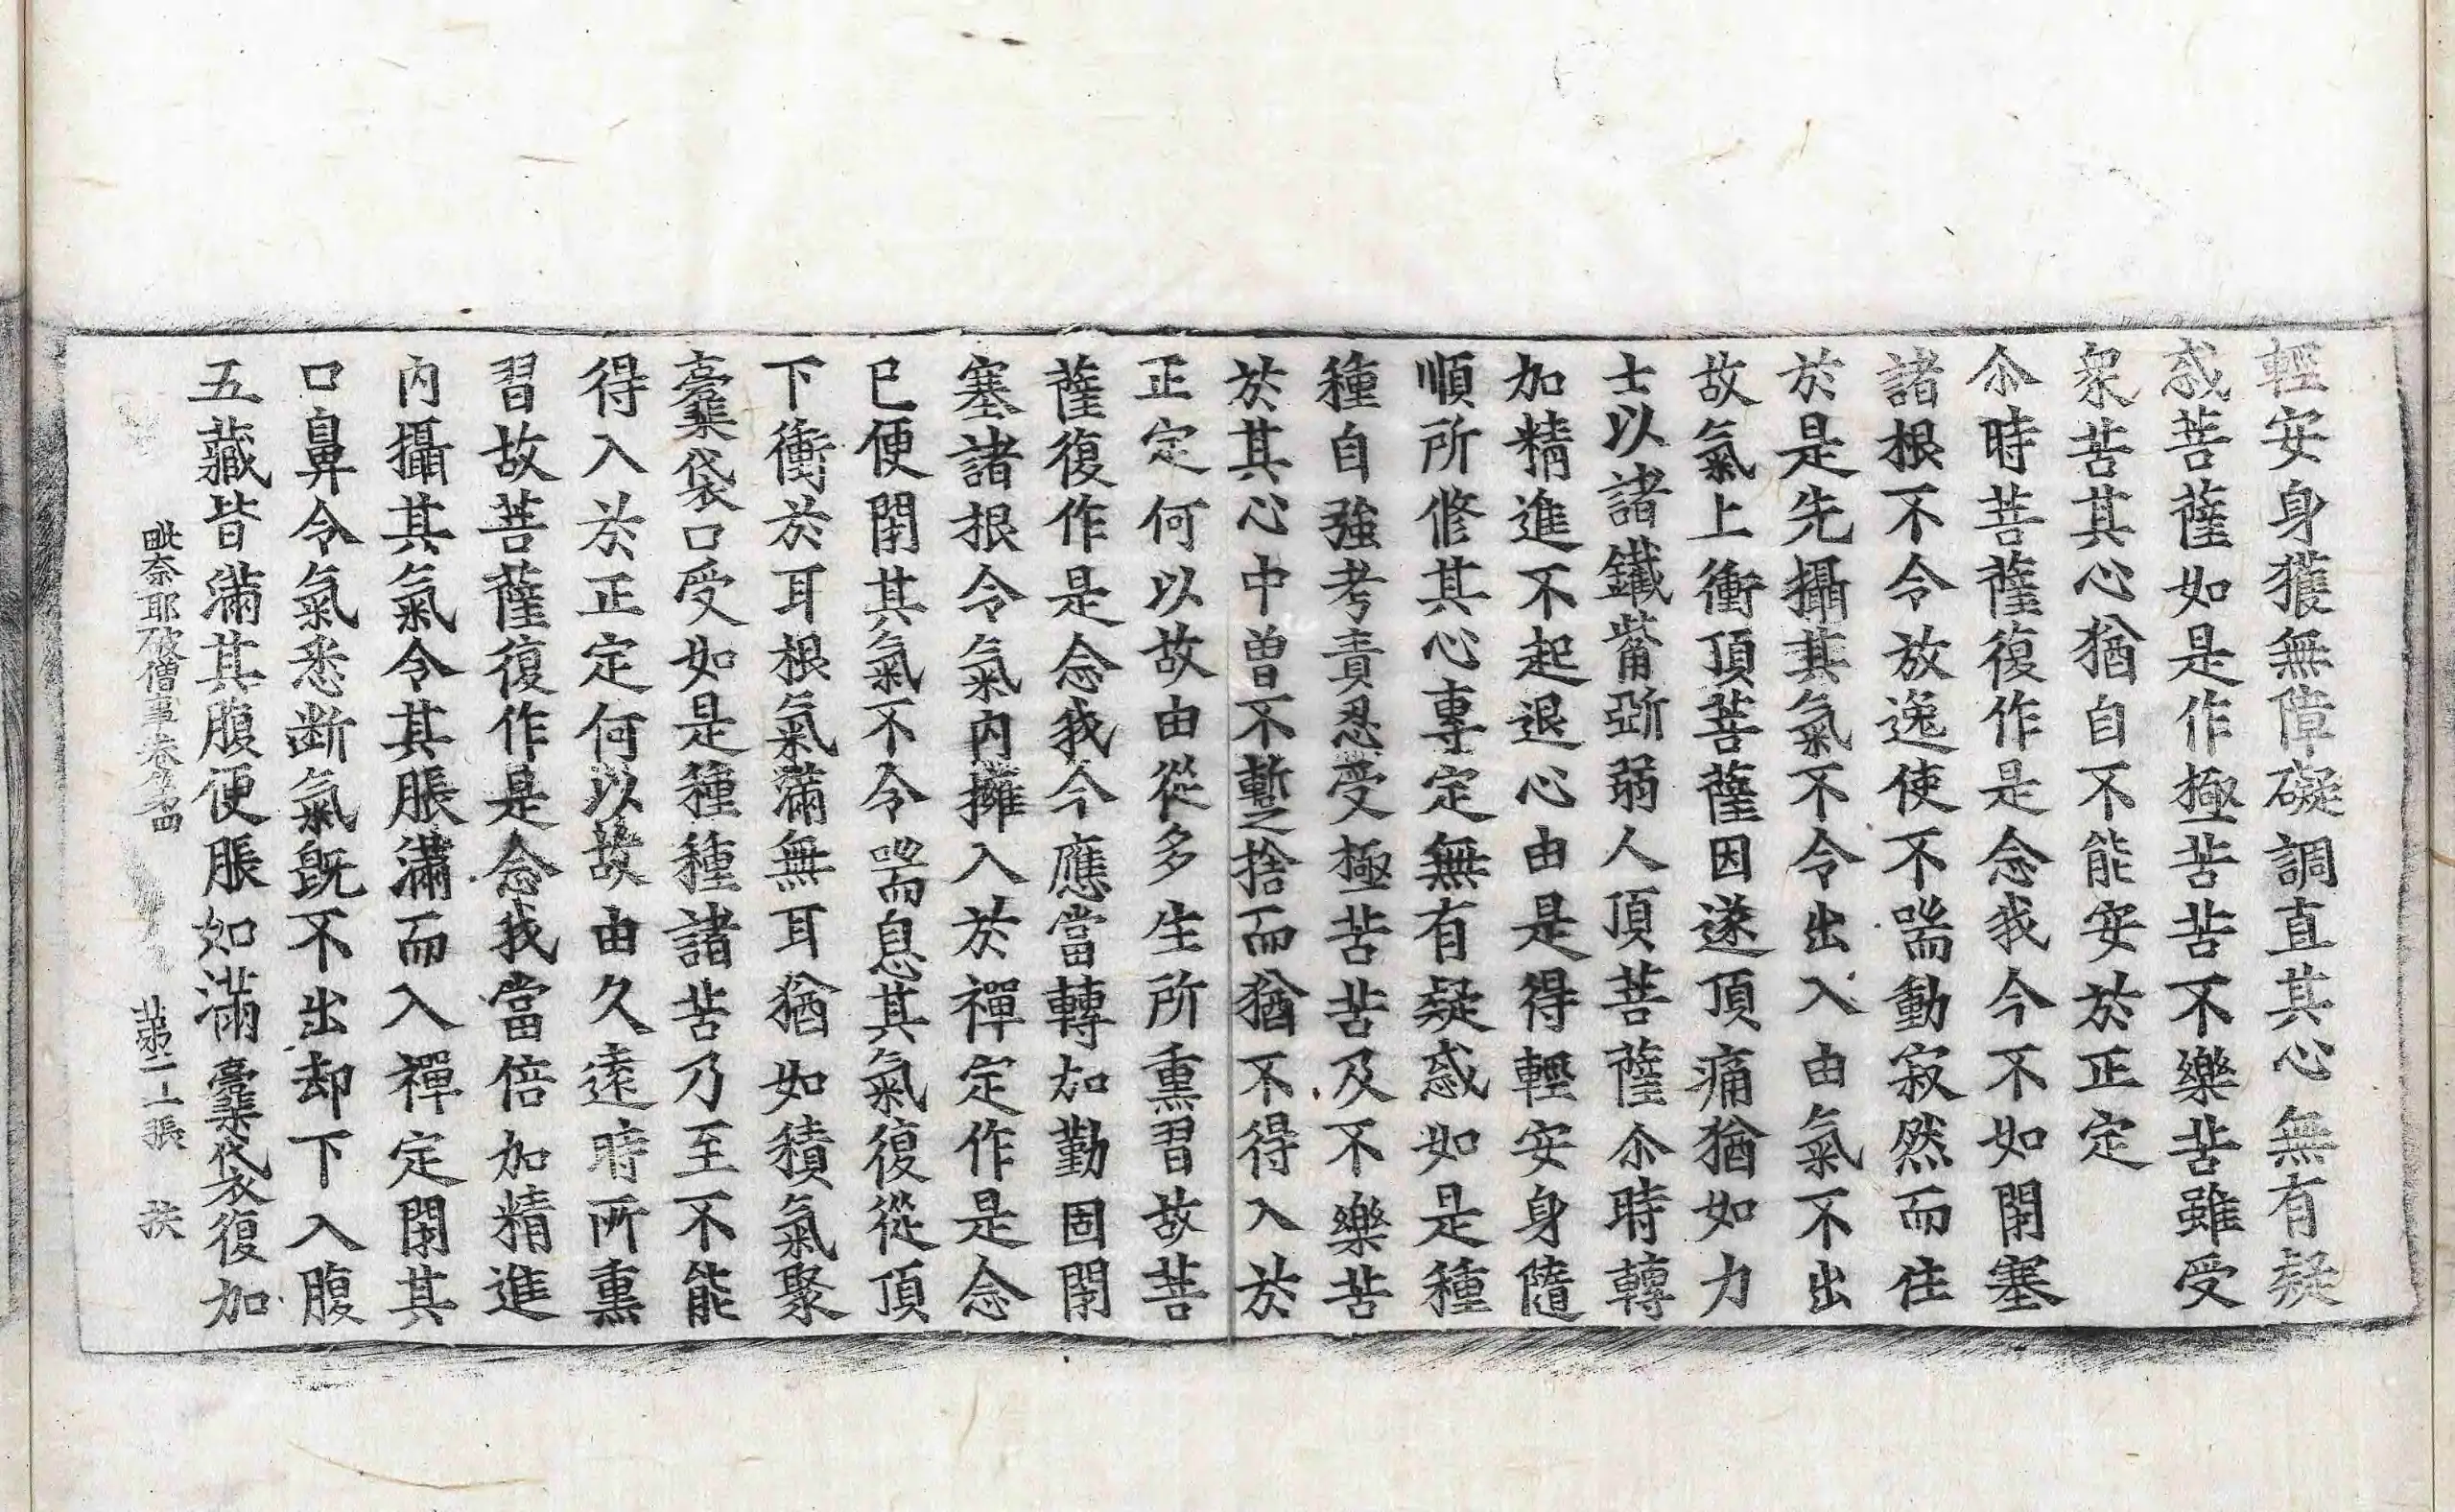 輕安身獲無障礙調直其心無有疑
惑菩薩如是作極苦苦不樂苦雖受
衆苦其心猶自不能安於正定
尒時菩薩復作是念我今不如閇塞
諸根不令放逸使不喘動寂然而住
於是先攝其氣不令出入由氣不出
故氣上衝頂菩薩因遂頂痛猶如力
士以諸鐵觜斲弱人頂菩薩尒時轉
加精進不起退心由是得輕安身隨
順所修其心專定無有疑惑如是種
種自強考責忍受極苦苦及不樂苦
於其心中曽不暫捨而猶不得入於
正定何以故由從多生所熏習故菩
薩復作是念我今應當轉加勤固閇
塞諸根令氣內擁入於禪定作是念
已便閇其氣不令喘息其氣復從頂
下衝於耳根氣滿無耳猶如積氣聚
橐袋口受如是種種諸苦乃至不能
得入於正定何以故由久遠時所熏
習故菩薩復作是念我當倍加精進
內攝其氣令其脹滿而入禪定閇其
口鼻令氣悉断氣旣不出却下入腹
五藏皆滿其腹便脹如滿橐袋復加
毗奈耶破僧事卷第四 第二十張 扶